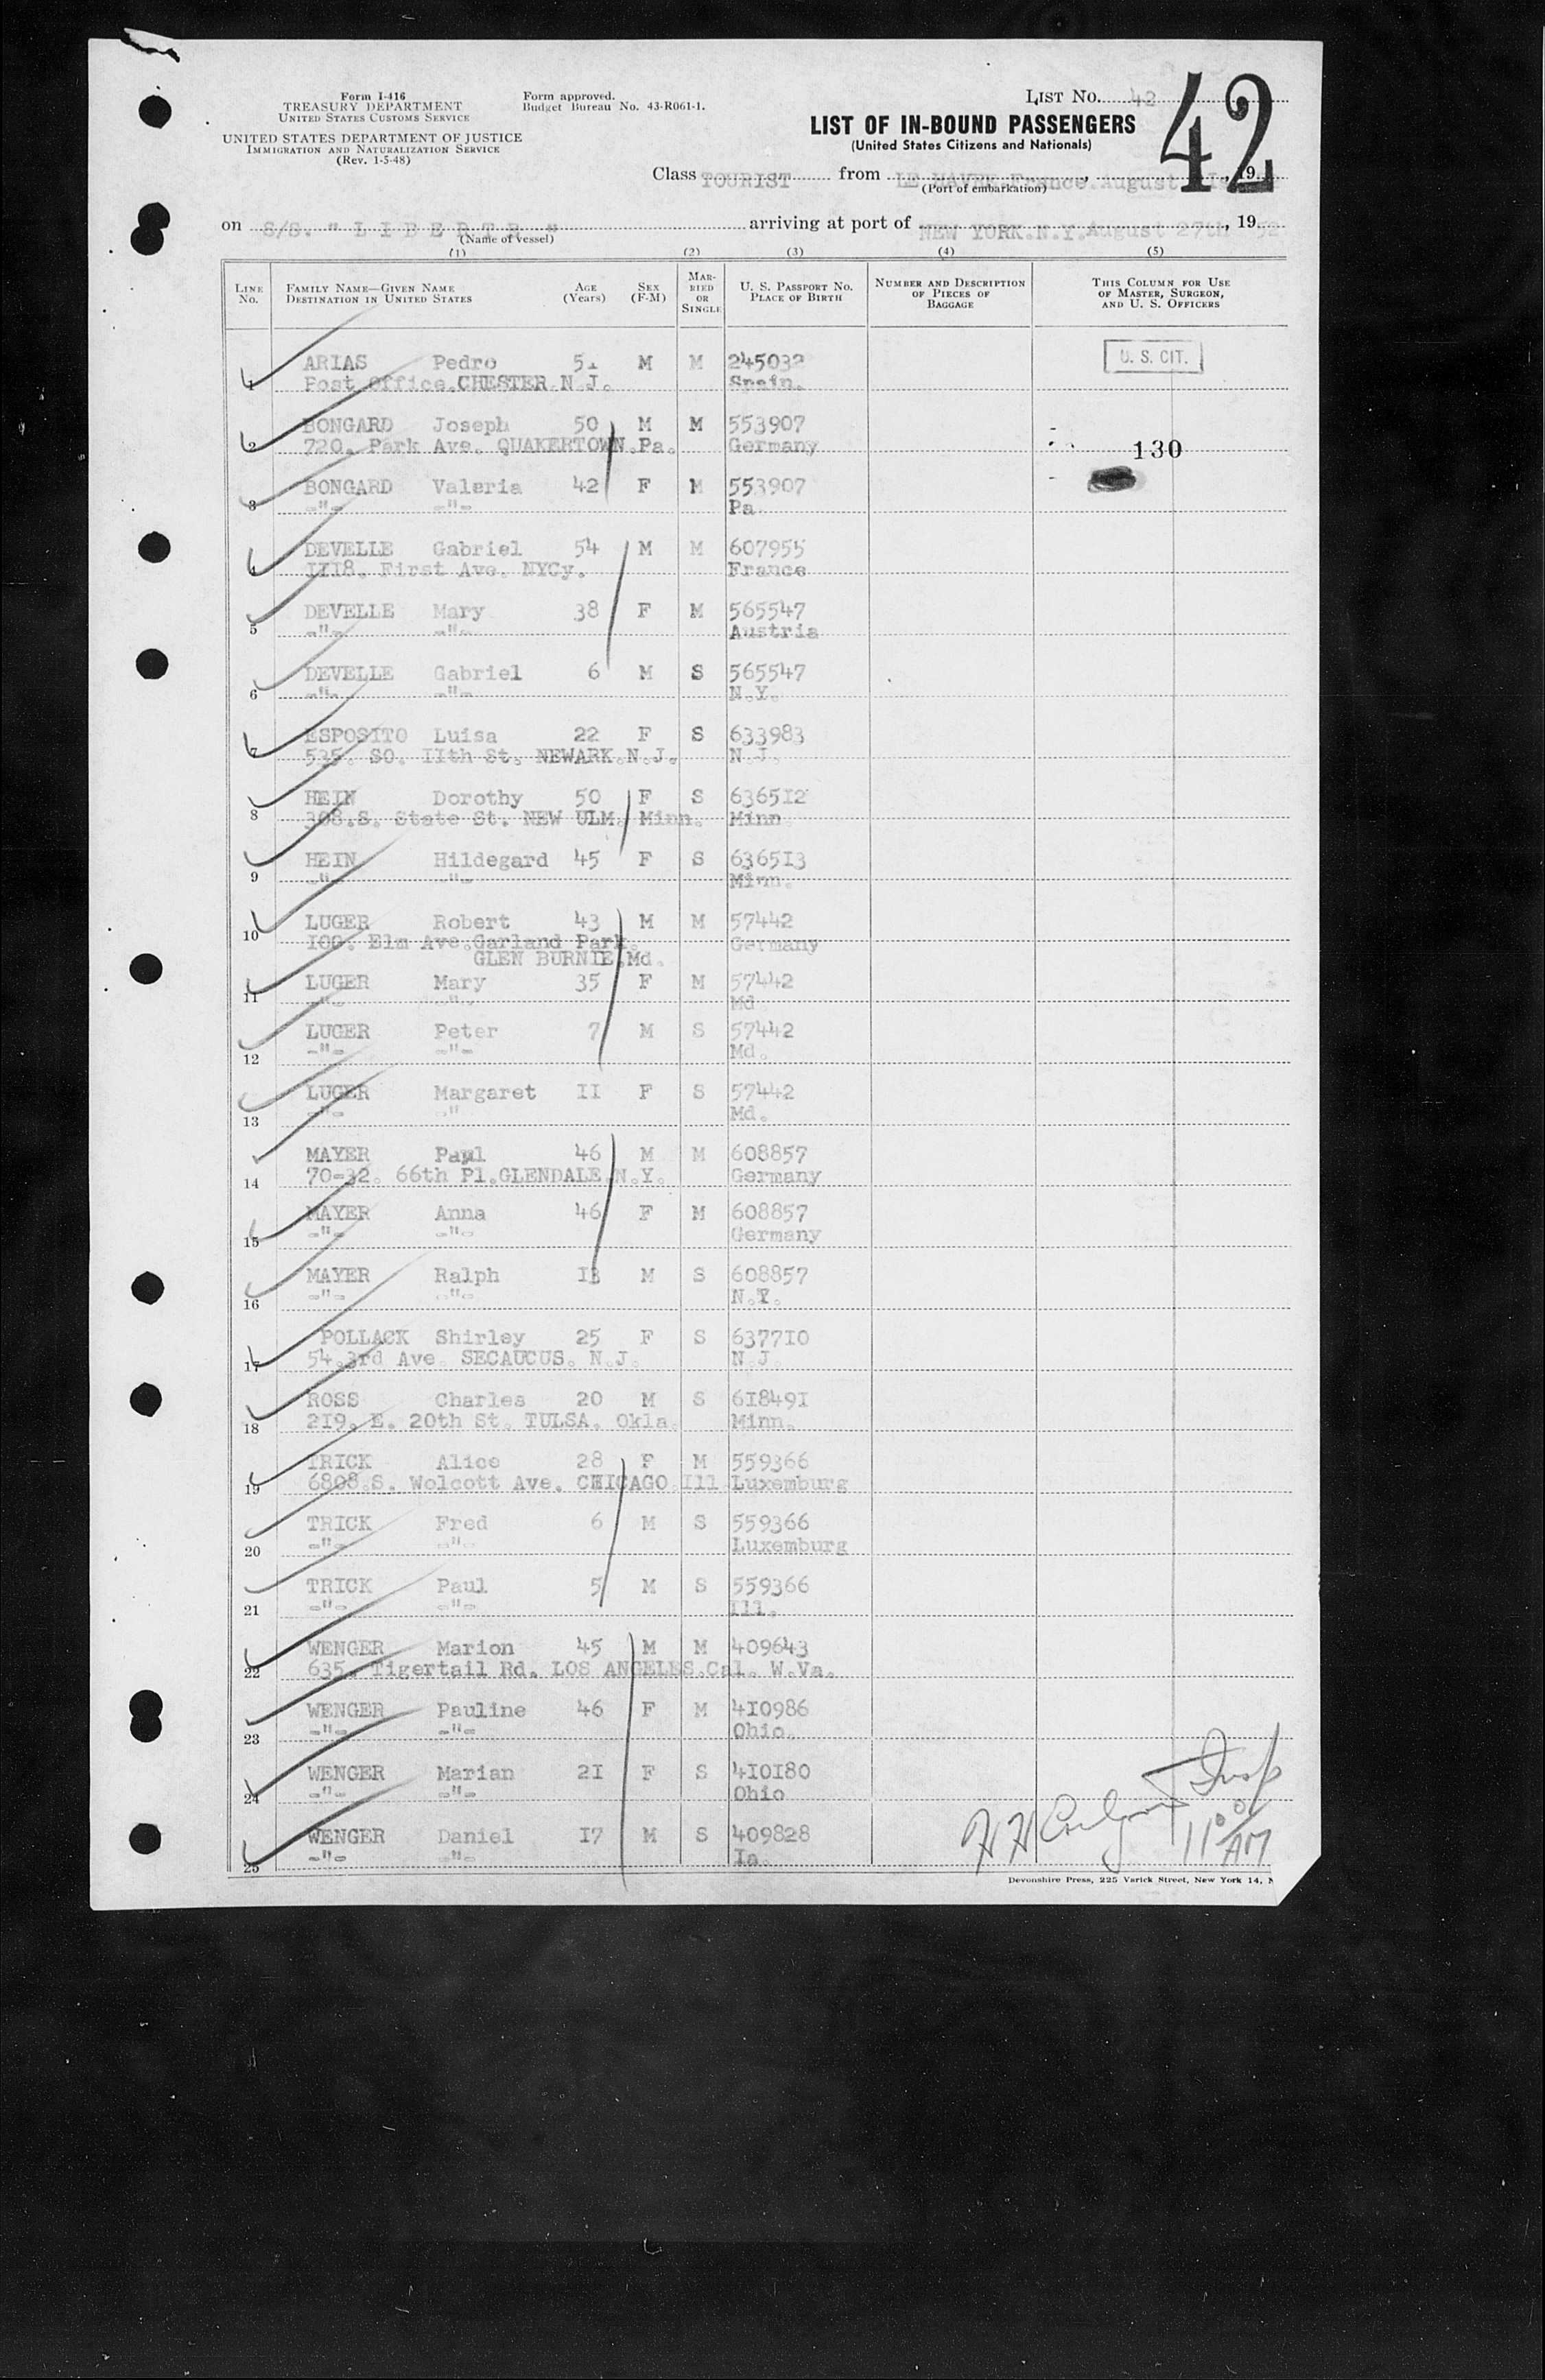 Form I-416
TREASURY DEPARTMENT
UNITED STATES CUSTOMS SERVICE
UNITED STATES DEPARTMENT OF JUSTICE
IMMIGRATION AND NATURALIZATION SERVICE
(Rev. 1-5-48)
Form approved.
Budget Bureau No. 43-R061-1.
LIST No. 42
42
LIST OF IN-BOUND PASSENGERS
(United States Citizens and Nationals)
Class TOURIST from LE HAVRE France. August , 19
(Port of embarkation)
on S/S. " L I B E R T E " arriving at port of NEW YORK.N.Y. August 27th , 19 52
(Name of vessel)
(1) (2) (3) (4) (5)
LINE No. FAMILY NAME—GIVEN NAME DESTINATION IN UNITED STATES AGE (Years) SEX (F-M) MARRIED OR SINGLE U. S. PASSPORT No. PLACE OF BIRTH NUMBER AND DESCRIPTION OF PIECES OF BAGGAGE THIS COLUMN FOR USE OF MASTER, SURGEON, AND U. S. OFFICERS
ARIAS Pedro 51 M M 245032 U. S. CIT.
1 Post Office.CHESTER.N.J. Spain.
BONGARD Joseph 50 M M 553907
2 720. Park Ave. QUAKERTOWN.Pa. Germany 130
BONGARD Valeria 42 F M 553907
3 -"- -"- Pa
DEVELLE Gabriel 54 M M 607955
4 III8. First Ave. NYCy. France
DEVELLE Mary 38 F M 565547
5 -"- -"- Austria
DEVELLE Gabriel 6 M S 565547
6 -"- -"- N.Y.
ESPOSITO Luisa 22 F S 633983
7 535. SO. IIth St. NEWARK.N.J. N.J.
HEIN Dorothy 50 F S 6365I2
8 308.S. State St. NEW ULM. Minn. Minn
HEIN Hildegard 45 F S 6365I3
9 -"- -"- Minn.
LUGER Robert 43 M M 57442
10 I00. Elm Ave.Garland Park. Germany
GLEN BURNIE.Md.
LUGER Mary 35 F M 57442
11 -"- -"- Md
LUGER Peter 7 M S 57442
12 -"- -"- Md.
LUGER Margaret II F S 57442
13 -"- -" Md.
MAYER Paul 46 M M 608857
14 70-32. 66th Pl.GLENDALE.N.Y. Germany
MAYER Anna 46 F M 608857
15 -"- -"- Germany
MAYER Ralph I3 M S 608857
16 -"- -"- N.Y.
POLLACK Shirley 25 F S 6377I0
17 54.3rd Ave. SECAUCUS. N.J. N.J
ROSS Charles 20 M S 6I849I
18 2I9. E. 20th St. TULSA. Okla. Minn.
TRICK Alice 28 F M 559366
19 6808.S. Wolcott Ave. CHICAGO.Ill Luxemburg
TRICK Fred 6 M S 559366
20 -"- -"- Luxemburg
TRICK Paul 5 M S 559366
21 -"- -"- Ill.
WENGER Marion 45 M M 409643
22 635. Tigertail Rd. LOS ANGELES.Cal. W.Va.
WENGER Pauline 46 F M 4I0986
23 -"- -"- Ohio.
WENGER Marian 2I F S 4I0I80
24 -"- -"- Ohio
WENGER Daniel I7 M S 409828
25 -"- -"- Ia.
11 00 AM
Devonshire Press, 225 Varick Street, New York 14,